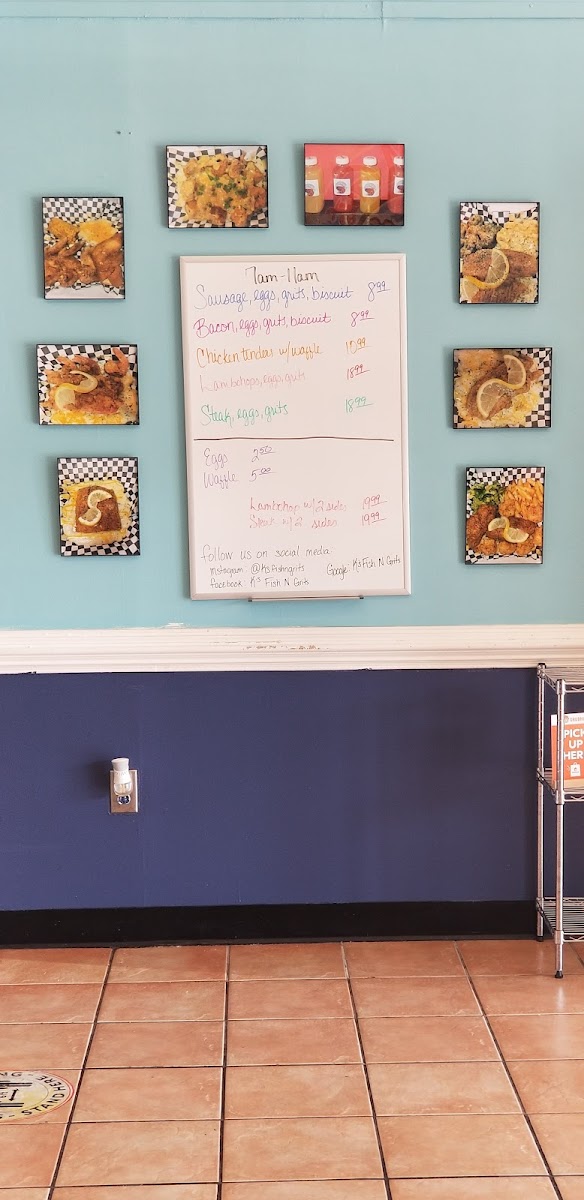 7am-11am
Sausage, eggs, grits, biscuit 8.99
Bacon, eggs, grits, biscuit 8.99
Chicken tenders w/ waffle 10.99
Lambchops, eggs, grits 18.99
Steak, eggs, grits 18.99
Eggs 2.50
Waffle 5.00
Lambchop w/ 2 sides 19.99
Steak w/ 2 sides 19.99
follow us on social media
instagram @ksfishngrits
Google: K's Fish N Grits
facebook: K's Fish N Grits
PICK
UP
HERE
STAND HERE